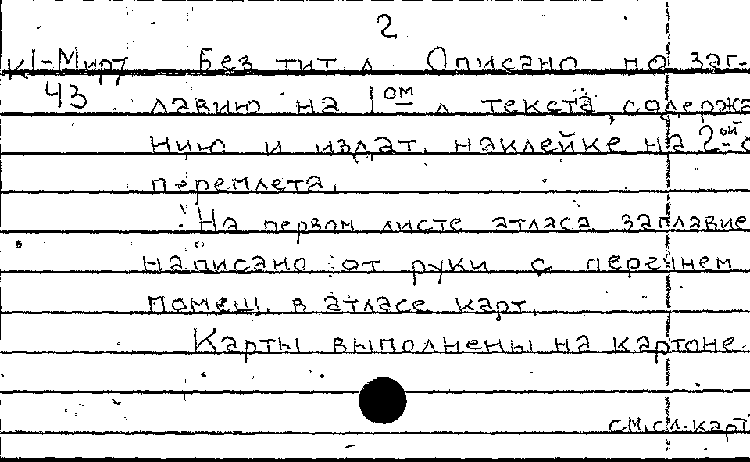 2
К1-Мирт Без тит л Описано по заг-
43 лавию на 1ом л текста, содержа
нию и издат. наклейке на 2-ой с
переплета.
На первом листе атласа заглавие
написано от руки с перечнем
помещ. в атласе карт.
Карты выполнены на картоне.
см.сл.карт